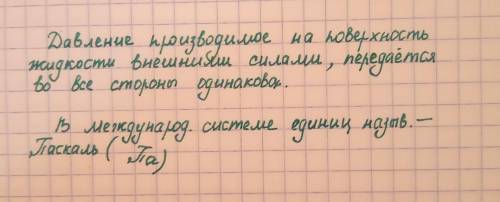 Давление производимое на поверхность
жидкости внешними силами, передаётся
во все стороны одинаково.
В международ. системе единиц назыв. —
Паскаль (Па)